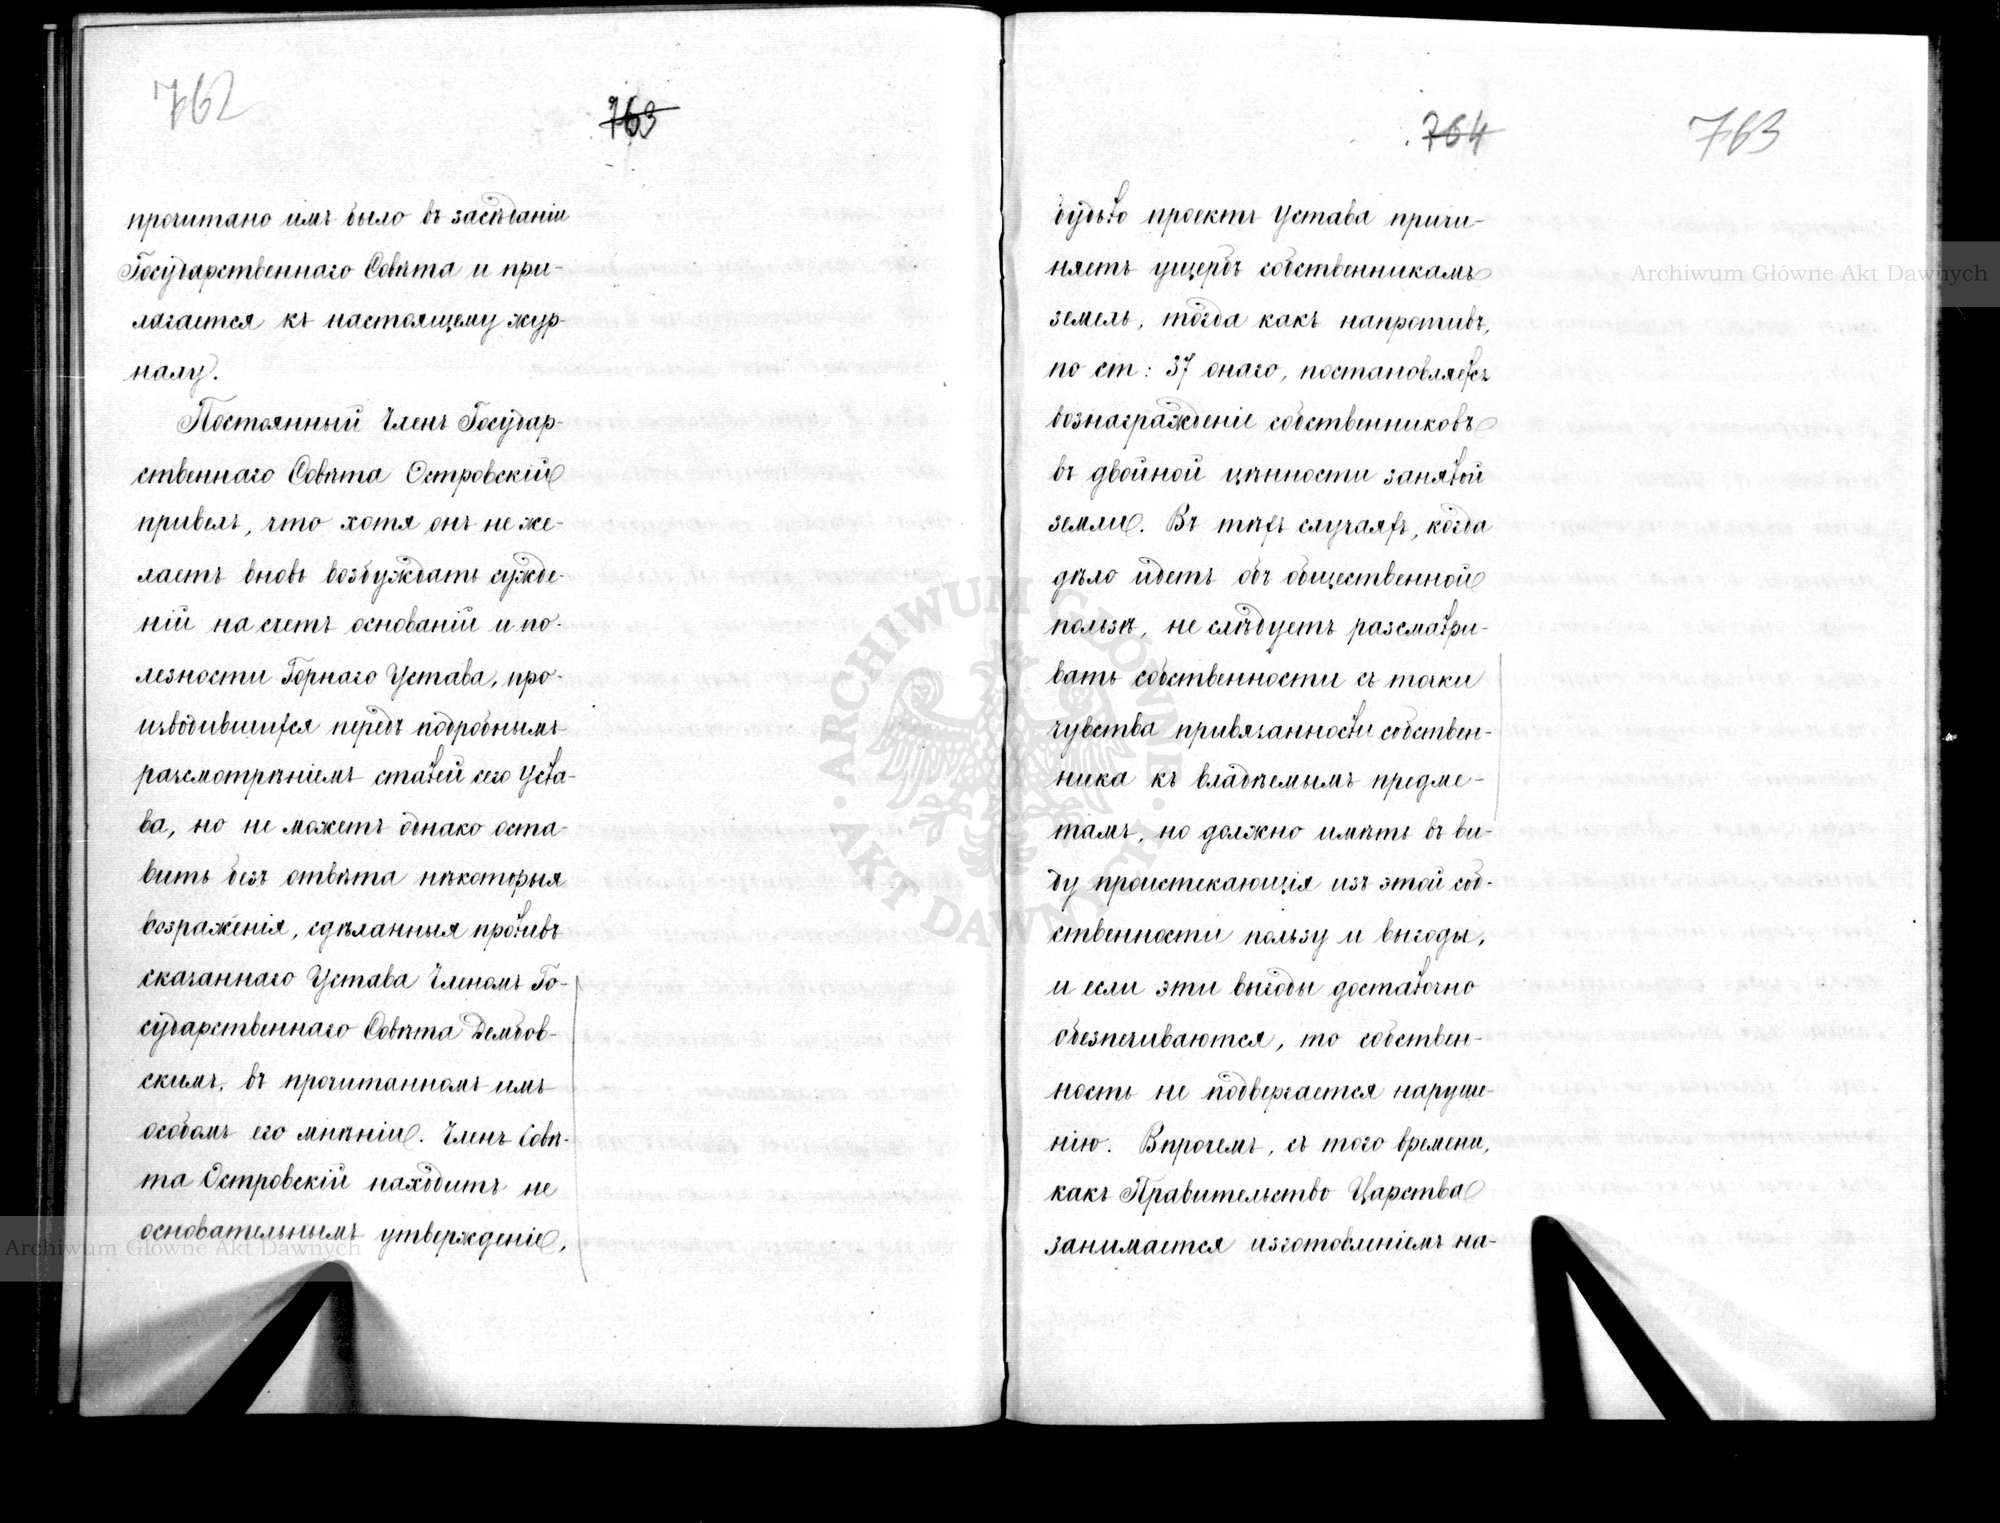 762
763
прочитано имъ было въ засѣданіи
Государственнаго Совѣта и при-
лагается къ настоящему жур-
налу.
Постоянный Членъ Государ-
ственнаго Совѣта Островскій
привелъ, что хотя онъ не же-
лаетъ вновь возбуждать сужде-
ній на счетъ основаній и по-
лезности Горнаго Устава, про-
изводившихся передъ подробнымъ
разсмотрѣніемъ статей сего Уста-
ва, но не можетъ однако оста-
вить безъ отвѣта нѣкоторыя
возраженія, сдѣланныя противъ
сказаннаго Устава Членомъ Го-
сударственнаго Совѣта Дембов-
скимъ, въ прочитанномъ имъ
особомъ его мнѣніи. Членъ Совѣ-
та Островскій находитъ не
основательнымъ утвержденіе,
764
763
будьто проектъ Устава причи-
няетъ ущербъ собственникамъ
земель, тогда какъ напротивъ,
по ст: 37 онаго, постановляетъ
вознагражденіе собственниковъ
въ двойной цѣнности занятой
земли. Въ тѣхъ случаяхъ, когда
дѣло идетъ объ общественной
пользѣ, не слѣдуетъ разсматри-
вать собственности съ точки
чувства привязанности собствен-
ника къ владѣемымъ предме-
тамъ, но должно имѣть въ ви-
ду проистекающія изъ этой соб-
ственности пользу и выгоды,
и если эти выгоды достаточно
обезпечиваются, то собствен-
ность не подвергается наруше-
нію. Впрочемъ, съ того времени,
какъ Правительство Царства
занимается изготовленіемъ на-
Archiwum Główne Akt Dawnych
Archiwum Główne Akt Dawnych
ARCHIWUM GŁÓWNE · AKT DAWNYCH ·